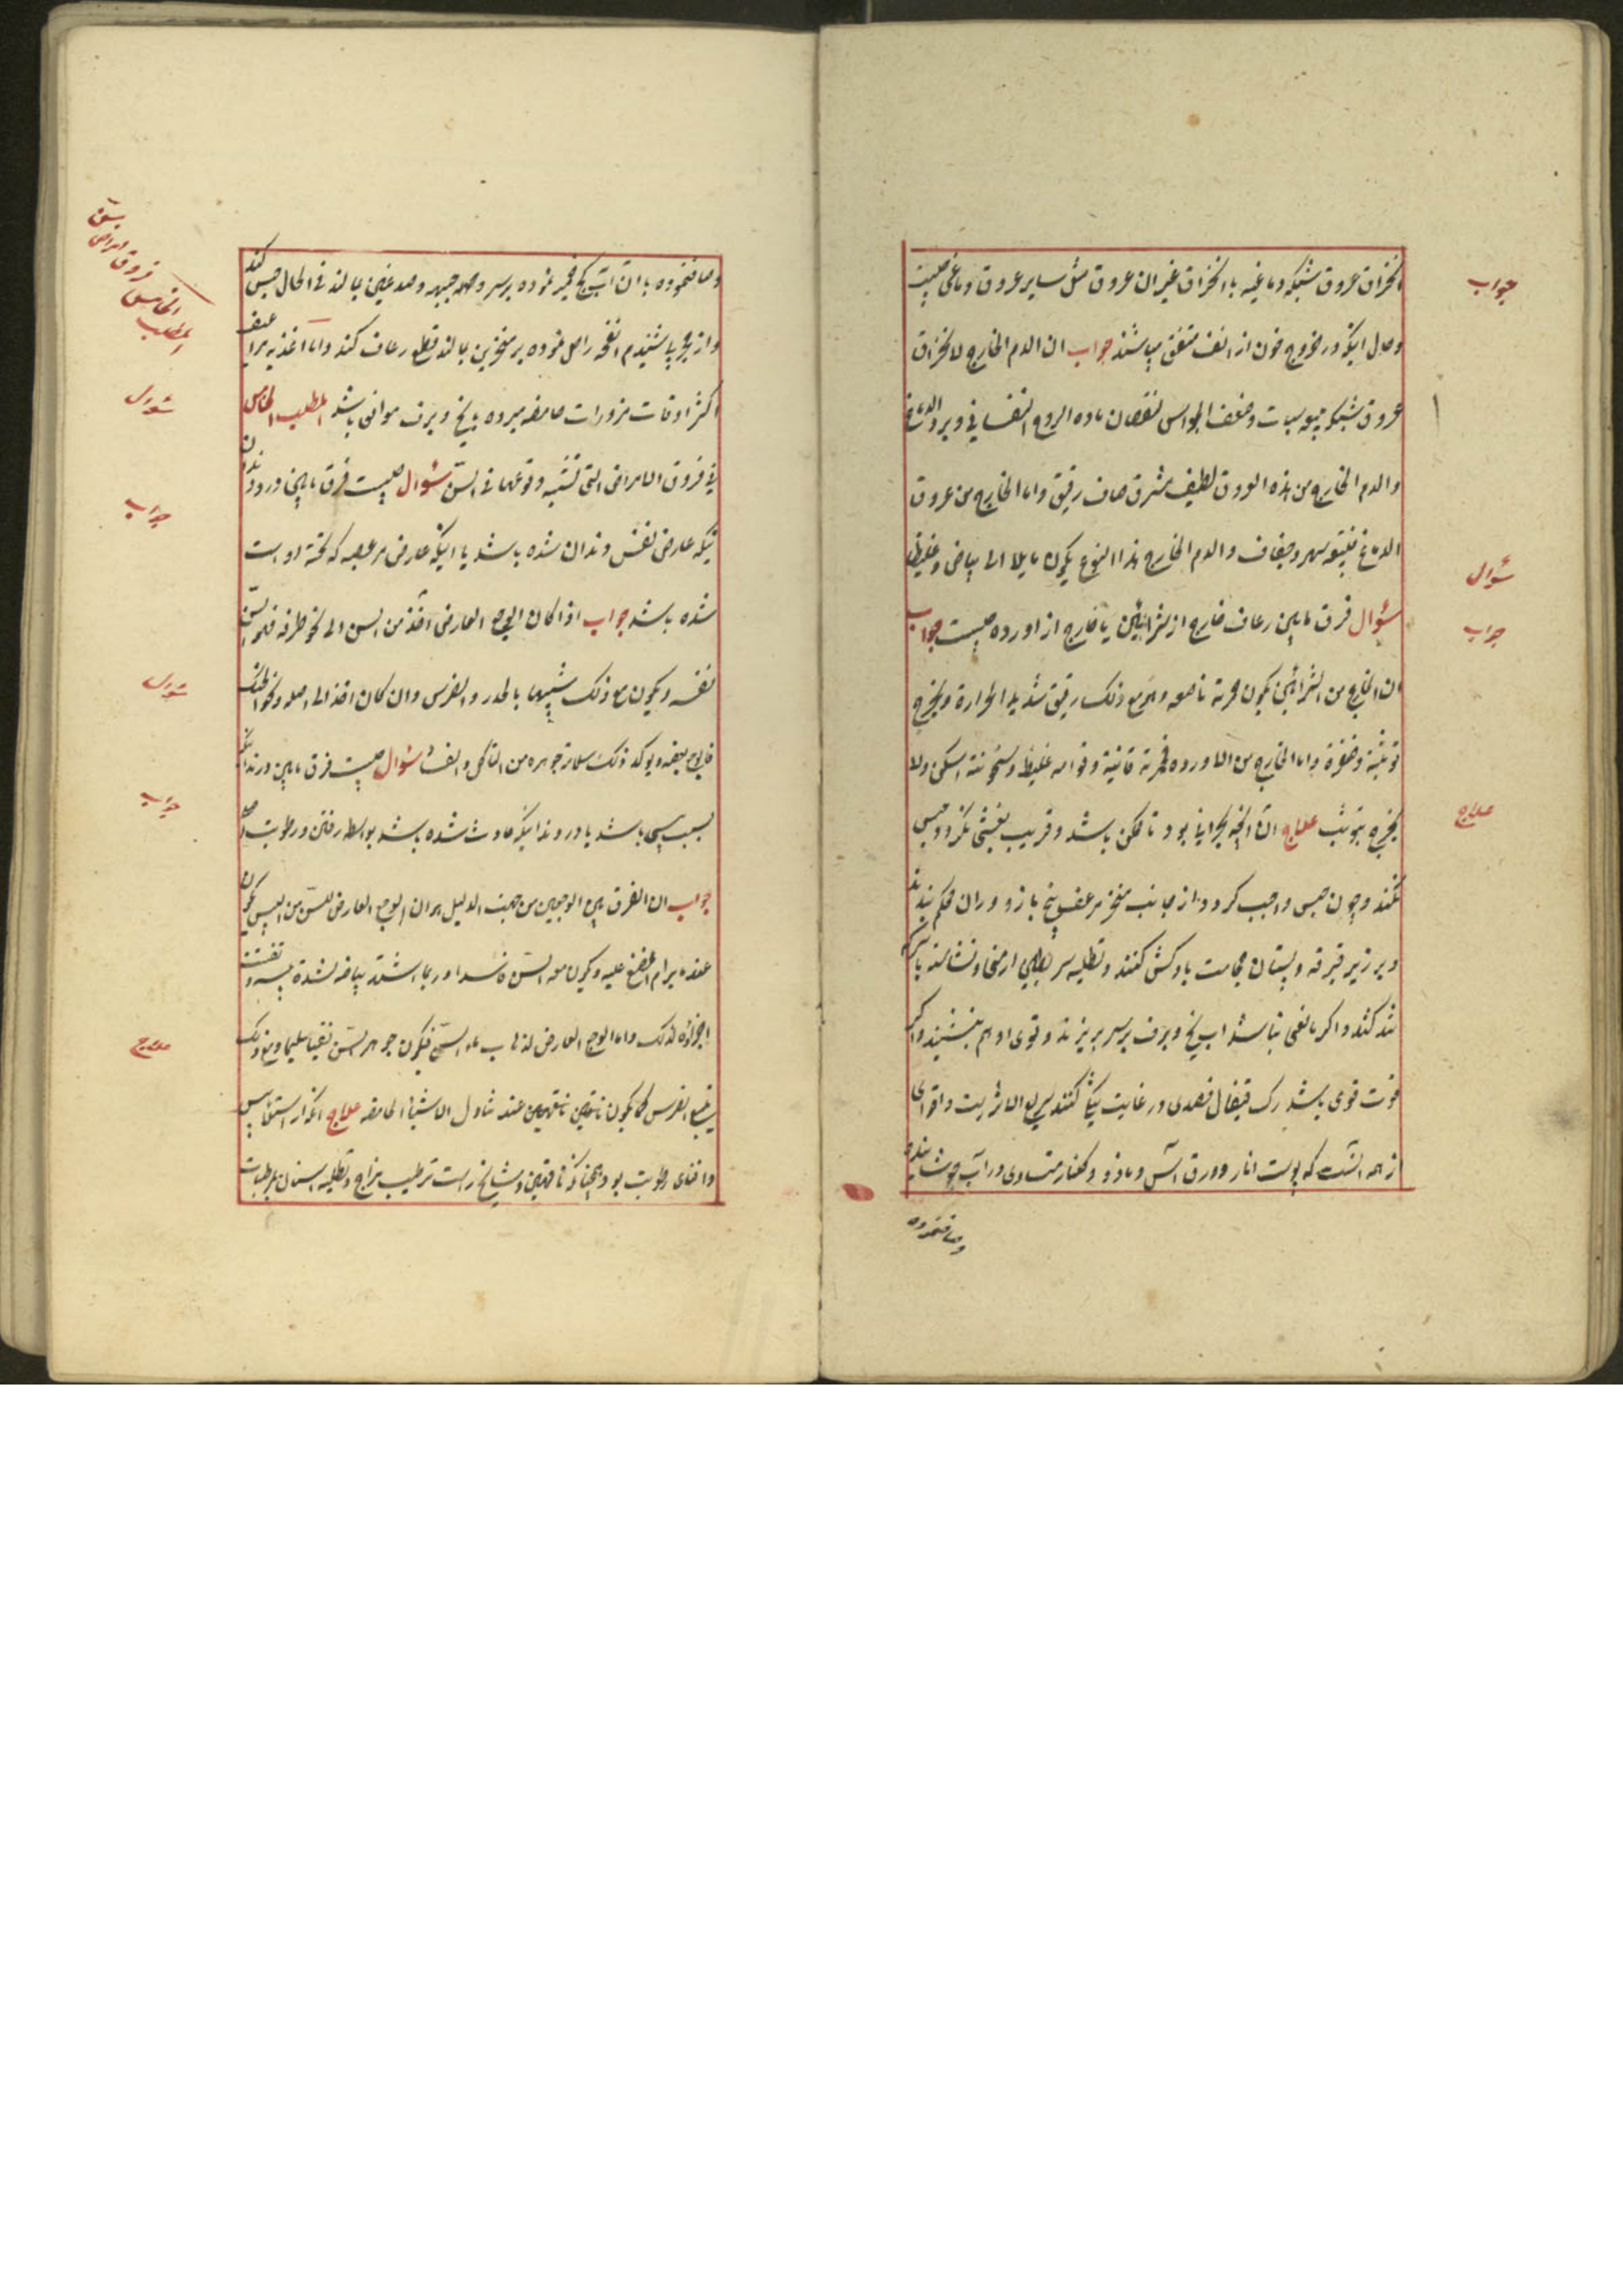 انخراق عروق شبکه دماغیه یا انخراق غیر ان عروق مثل سایر عروق دماغی چیست
جواب
وحال اینکه در خروج خون از انف متفق میباشند جواب ان الدم الخارج لانخراق
عروق شبکه یتبعه سبات وضعف الحواس لنقصان ماده الروح النفسانی وبرد الدماغ
والدم الخارج من هذه العروق لطیف مشرق صاف رقیق واما الخارج من عروق
الدماغ فیتبعه سهر وجفاف والدم الخارج هذا النوع یکون مایلا الی بیاض وغلیظا
سؤال
سؤال فرق مابین رعاف خارج از شرائین یا خارج از اورده چیست جواب
جواب
ان الخارج من الشرائین یکون حمرته ناصعه وهو مع ذلک رقیق شدید الحرارة ویخرج
توثبة وضفرة واما الخارج من الاورده فحمرته قانیة وقوامه غلیظ وسخونته اسکن ولا
یخرج بتوثب علاج ان انچه بحرانی بود تا ممکن باشد وقریب بغشی نکردد حبس
علاج
نکنند وچون حبس واجب کردد از جانب منخر مرعف بیخ بازو وران محکم بندند
وبر زیر ترقه وپستان حجامت بادکش کنند وتطلیه سر بطین ارمنی ونشانند بآب سرکه
شد کنند واکر مانعی نباشد آب یخ وبرف بر سر بریزند وقوی او هم بنشیند واکر
قوت قوی باشد رک قیفال فصدی در غایت تنک کنند سریع الاثر است واقوای
از همه آنست که پوست انار وورق آس ومازو وکلنار متساوی در آب جوشانیده
وصاف نموده
وصاف نموده با ان آب کچ خمیر نموده بر سر وهمه جبهه وصدغین بمالند فی الحال حبس کند
واز مجربات شبدم انفحه را حل نموده بر منخرین بمالند قطع رعاف کند واما اغذیه مراعف
المطلب الخامس فروق امراض سن
اکثر اوقات مزورات حامضه مبرده بایخ وبرف موافق باشد المطلب الخامس
سؤال
فی فروق الامراض التی تشتبه وقوعها فی السن سؤال چیست فرق مابین درد دندان
نیکه عارض نفس دندان شده باشد یا اینکه عارض مر عصبه که تحت او است
جواب
شده باشد جواب اذا کان الوجع العارض آخذ من السن الی نحو طرفه فهو السن
نفسه ویکون مع ذلک شبیها بالخدر والضرس وان کان اخذ الی اصله ونحو الفک
سؤال
فالوجع بعصبه ویوکد ذلک سلامة جوهره من التاکل والفساد سؤال چیست فرق مابین درد دندانیکه
بسبب یبسی باشد یا درد دندانیکه حادث شده باشد بواسطه رفتن ورطوبت
جواب
جواب ان الفرق بین الوجعین من جهت الدلیل هو ان الوجع العارض للسن من الیبس یکون
عند مایرام المضغ علیه ویکون معه السن فاسدا وربما اشتد بیاضه لشدة یبسه وتفتت
علاج
اجزاؤه لذلک واما الوجع العارض لذهاب ماء السن فیکون جوهر السن نقیا سلیما ومع ذلک
یتبع الضرس کما یکون ناقهین عند تناول الاشیاء الحامضه علاج
وافنای رطوبت بود همچنانکه ناقهین ومشایخ راست ترطیب مزاج وتطلیه اسنان بمرطبات